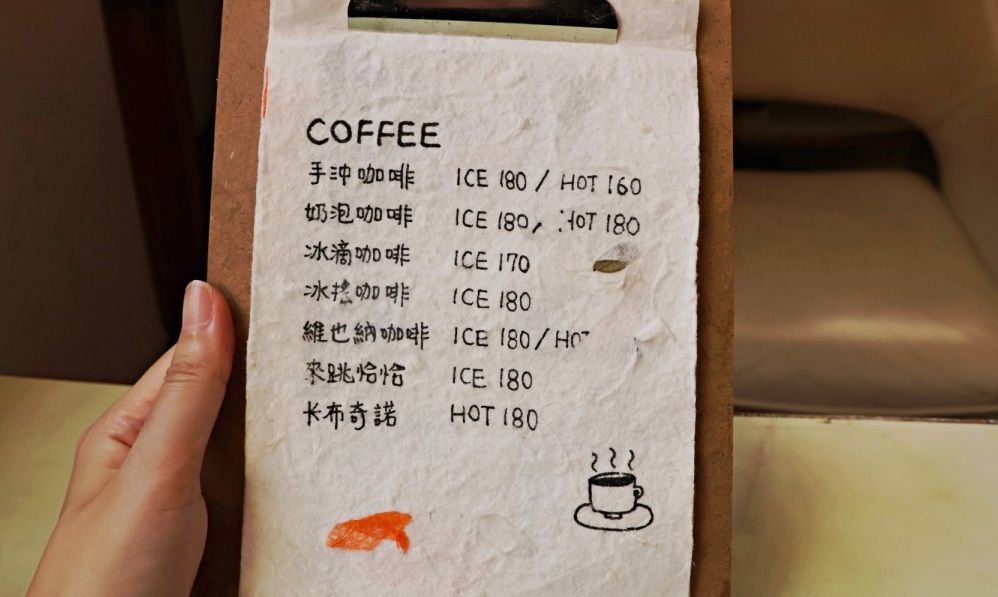 COFFEE
手沖咖啡 ICE 180 / HOT 160
奶泡咖啡 ICE 180, HOT 180
冰滴咖啡 ICE 170
冰搖咖啡 ICE 180
維也納咖啡 ICE 180 / HOT
來跳恰恰 ICE 180
卡布奇諾 HOT 180